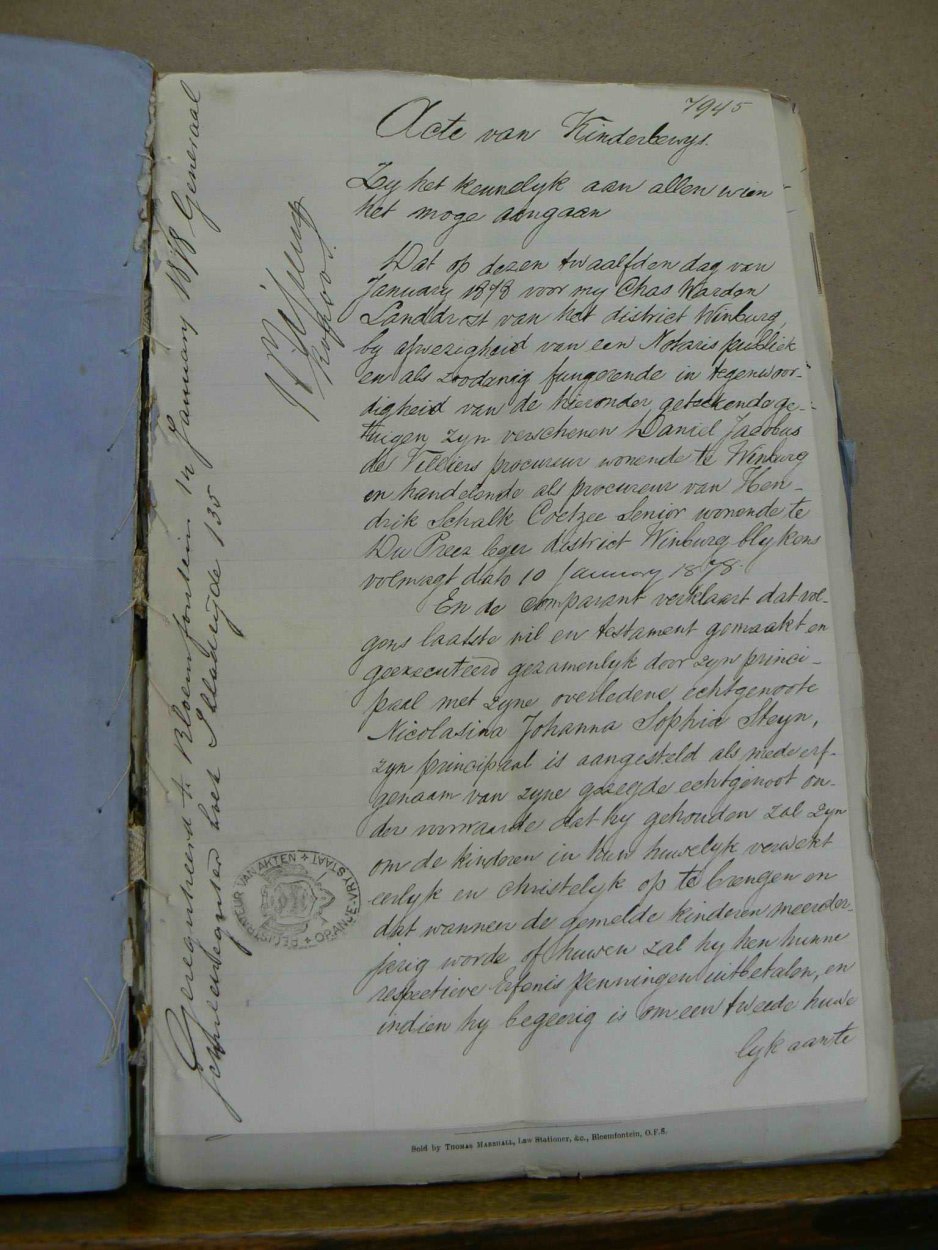 7945
Acte van Kinderbewys.
Zy het kennelyk aan allen wien
het moge aangaan
Dat op dezen twaalfden dag van
January 1878 voor my Chas Wardon
Landdrost van het district Winburg,
by afwezigheid van een Notaris publiek
en als zoodanig fungerende in tegenwoor-
digheid van de hieronder getekende ge-
tuigen, zyn verschenen Daniel Jacobus
de Villiers procureur wonende te Winburg
en handelende als procureur van Hen-
drik Schalk Coetzee Senior wonende te
Du Preez leger district Winburg blykens
volmagt dato 10 January 1878.
En de comparant verklaart dat vol-
gens laatste wil en testament gemaakt en
geexecuteerd gezamenlyk door zyn princi-
paal met zyne overledene echtgenoote
Nicolasina Johanna Sophia Steyn,
zyn principaal is aangesteld als mede erf-
genaam van zyne gezegde echtgenoot on-
der voorwaarde dat hy gehouden zal zyn
om de kinderen in hun huwelyk verwekt
eerlyk en christelyk op te brengen en
dat wanneer de gemelde kinderen meerder-
jarig worde of huwen zal hy hen hunne
respectieve Erfenis Penningen uitbetalen, en
indien hy begeerig is om een tweede huwe
lyk aan te
Geregistreerd te Bloemfontein 14 January 1878 Generaal
Schuldregister boek bladzyde 135
REGISTRATEUR VAN AKTEN + ORANJE-VRYSTAAT +
Sold by THOMAS MARSHALL, Law Stationer, &c., Bloemfontein, O.F.S.